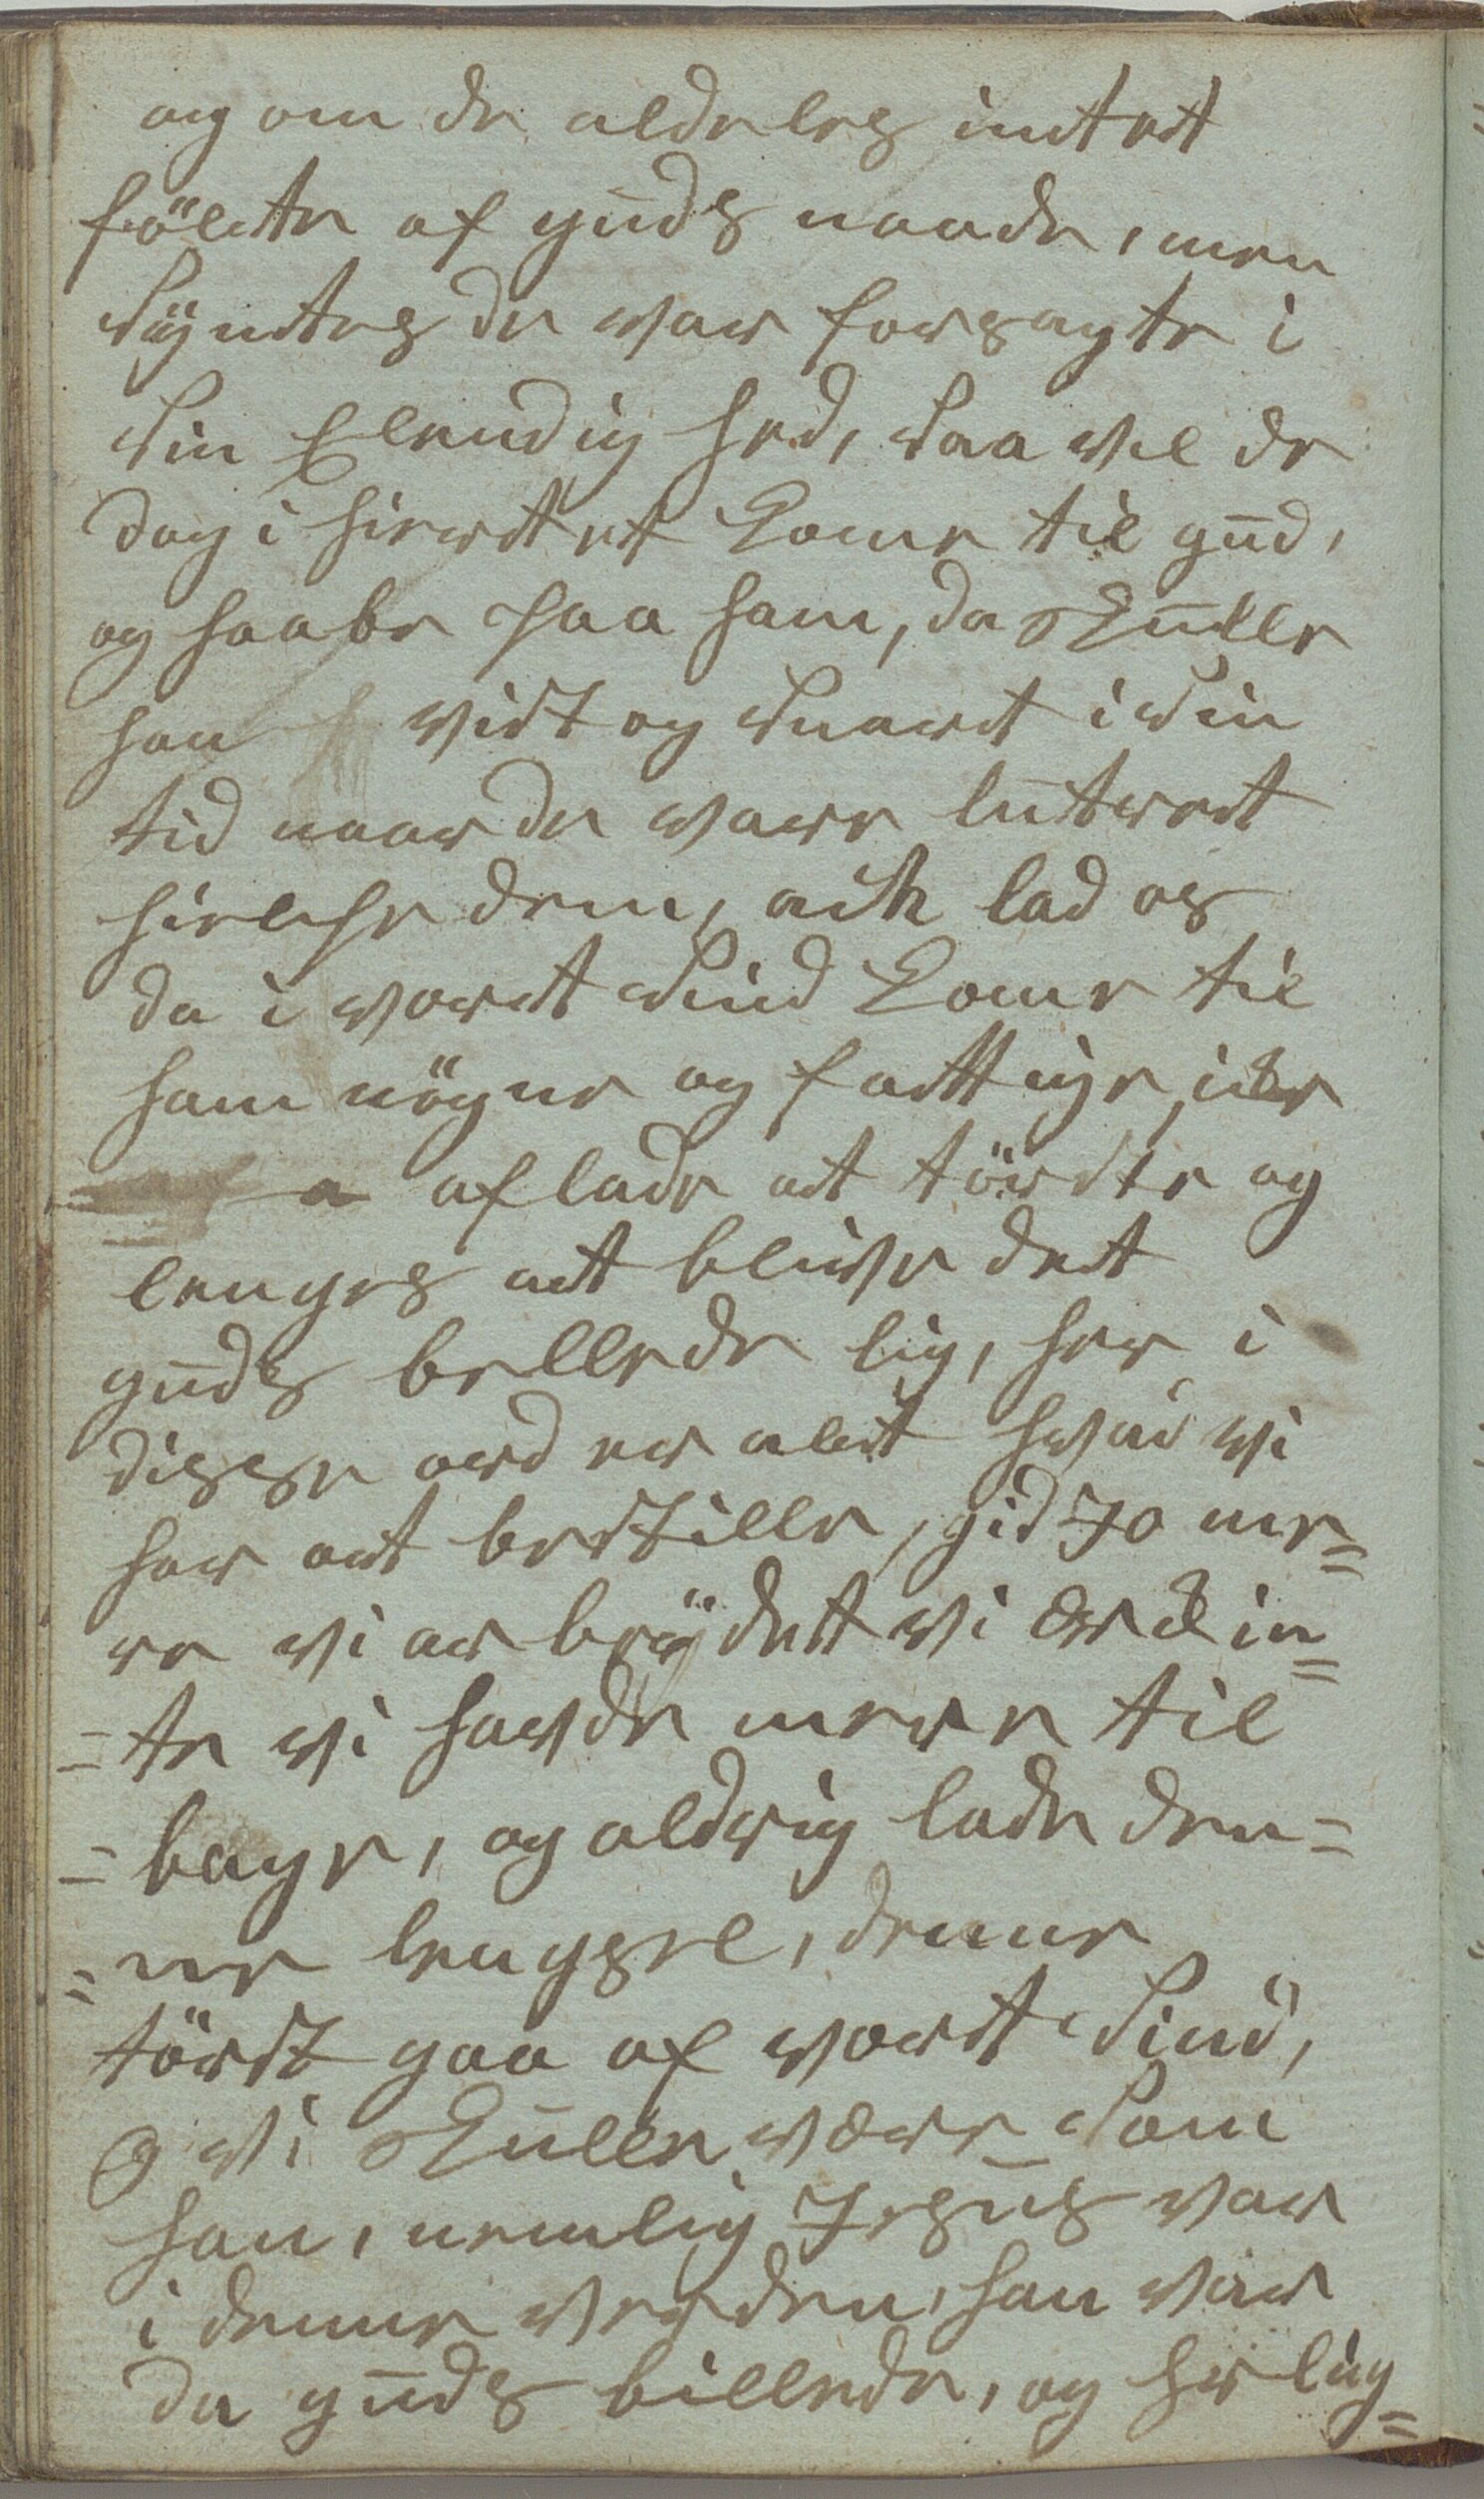 og om de aldeles inttet
fölte af guds naade, men
Sÿntes de var forsagte i
Sin Elendig hed, Saa vil de
dog i hiertet kome til gud,
og haabe Paa ham, da Skulle
han vist og Snart i Sin
tid naar de vare lutret
hielpe dem, ach lad os
da i vort Sind kome til
ham nögne og fattige, icke
aflade at törste og
lenges at blive det
guds bellede lig, her i
disse ord er alt hvad vi
har at bestille, gid Jo me=
re vi ar beÿdett vi
=te vi havde mere til
=bage, og aldrig lade den=
=ne lengsel, denne
törst gaa af vort Sind,
O vi Skulle være Som
han, nemlig Jesus var
i denne verden, han var
da guds billede, og her lig=